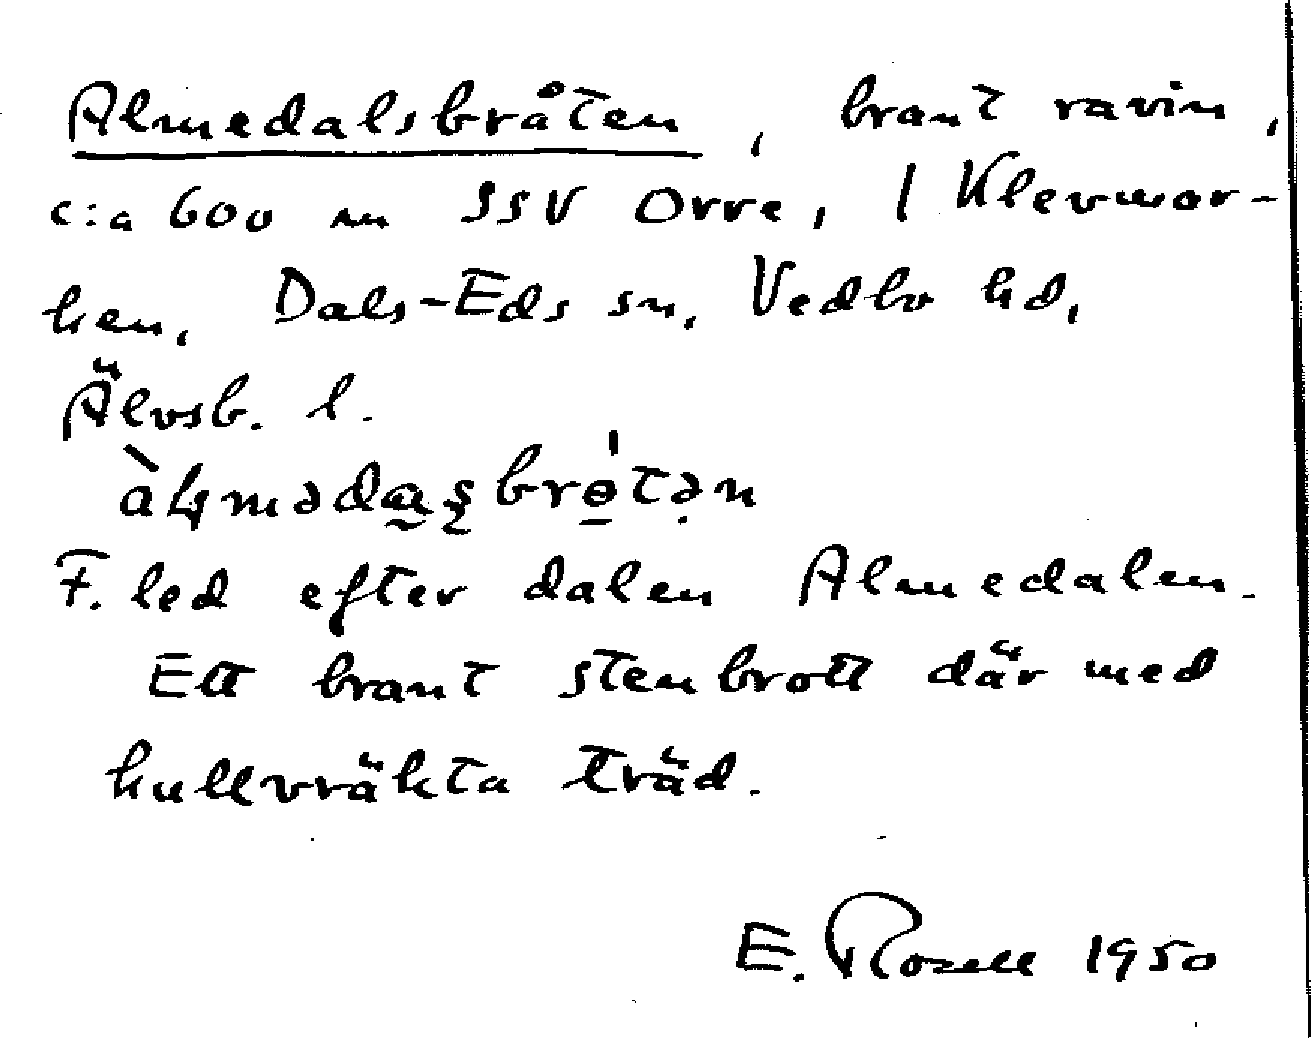 Almedalsbråten, brant ravin,
c:a 600 m SSV Orre, i Klevmar-
ken, Dals-Eds sn, Vedbo hd,
Älvsb. l.
F. led efter dalen Almedalen.
Ett brant stenbrott där med
kullvräkta träd.
E. Rosell 1950